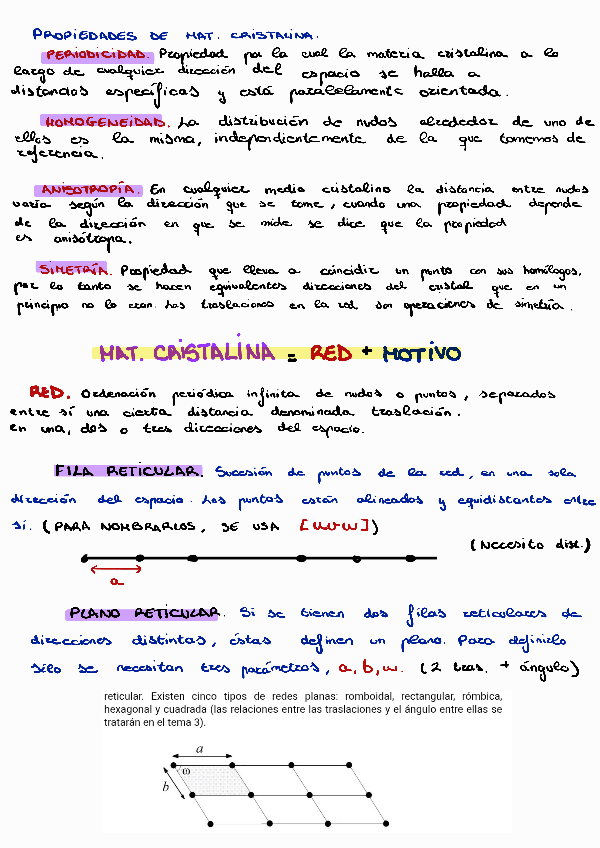 PROPIEDADES DE MAT. CRISTALINA.
PERIODICIDAD. Propiedad por la cual la materia cristalina a lo
largo de cualquier dirección del espacio se halla a
distancias específicas y está paralelamente orientada.
HOMOGENEIDAD. La distribución de nudos alrededor de uno de
ellos es la misma, independientemente de la que tomemos de
referencia.
ANISOTROPÍA. En cualquier medio cristalino la distancia entre nudos
varía según la dirección que se tome, cuando una propiedad depende
de la dirección en que se mide se dice que la propiedad
es anisótropa.
SIMETRÍA. Propiedad que lleva a coincidir un punto con sus homólogos,
por lo tanto se hacen equivalentes direcciones del cristal que en un
principio no lo eran. Las traslaciones en la red son operaciones de simetría.
MAT. CRISTALINA = RED + MOTIVO
RED. Ordenación periódica infinita de nudos o puntos, separados
entre sí una cierta distancia denominada traslación.
en una, dos o tres direcciones del espacio.
FILA RETICULAR. Sucesión de puntos de la red, en una sola
dirección del espacio. Los puntos están alineados y equidistantes entre
sí. (PARA NOMBRARLOS, SE USA [uvw])
(Necesito dist.)
a
PLANO RETICULAR. Si se tienen dos filas reticulares de
direcciones distintas, éstas definen un plano. Para definirlo
sólo se necesitan tres parámetros, a, b, w. (2 tras. + ángulo)
reticular. Existen cinco tipos de redes planas: romboidal, rectangular, rómbica,
hexagonal y cuadrada (las relaciones entre las traslaciones y el ángulo entre ellas se
tratarán en el tema 3).
a
ω
b